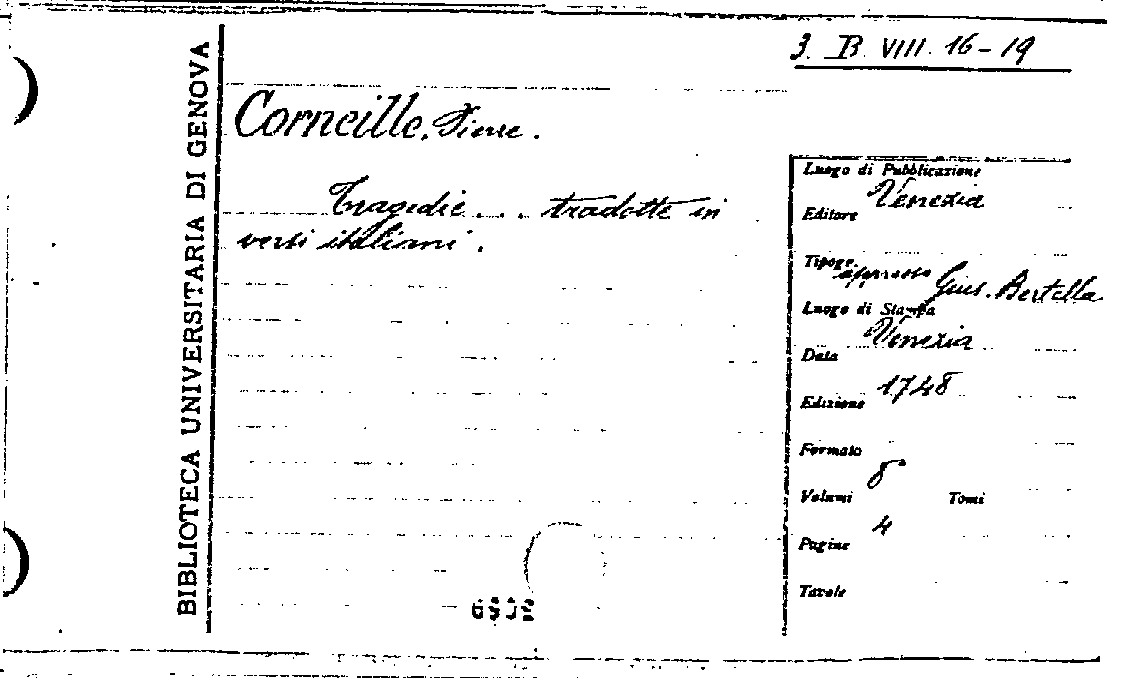 3. B. VIII. 16-19
BIBLIOTECA UNIVERSITARIA DI GENOVA
Corneille, Pierre.
Tragedie... tradotte in
versi italiani.
Luogo di Pubblicazione
Venezia
Editore
Tipogr.
appresso Gius. Bertella
Luogo di Stampa
Venezia
Data
1748
Edizione
Formato
8°
Volumi Tomi
4
Pagine
Tavole